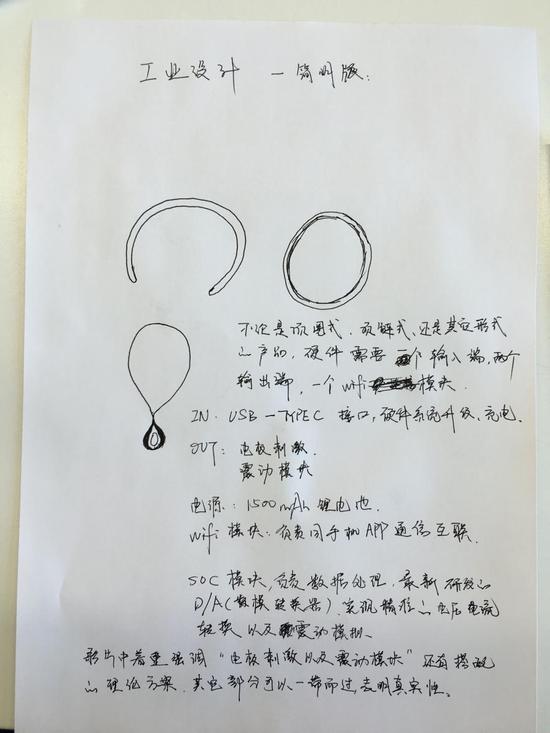 工业设计 — 简明版:
不论是颈圈式、项链式、还是其它形式
的产品, 硬件需要一个输入端, 两个
输出端, 一个wifi模块.
IN: USB-TYPEC 接口, 硬件系统升级、充电.
OUT: 电极刺激
震动模块
电源: 1500mAh 锂电池.
wifi 模块: 负责同手机APP通信互联.
SOC 模块, 负责数据处理, 最新研发的
D/A(数模转换器). 实现精准的电压电流
转换以及震动模拟.
影片中着重强调“电极刺激以及震动模块”还有搭配
的理论方案. 其它部分可以一带而过, 表明真实性。